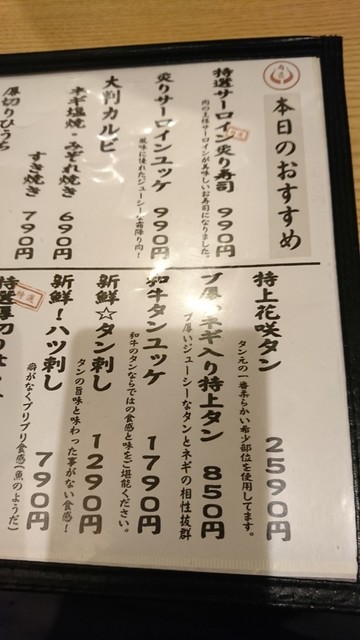 本日のおすすめ
特選サーロイン炙り寿司 990円
肉の王様サーロインが美味しいお寿司になりました。
炙りサーロインユッケ 990円
風味に優れたジューシーな霜降り肉!
大判カルビ
ネギ塩焼・みぞれ焼き 690円
すき焼き 790円
厚切りひうち
特上花咲タン 2590円
タン元の一番柔らかい希少部位を使用してます。
ブ厚いネギ入り特上タン 850円
ブ厚いジューシーなタンとネギの相性抜群
和牛タンユッケ 1790円
和牛のタンならではの食感と味をご堪能ください。
新鮮☆タン刺し 1290円
タンの旨味と味わった事がない食感!
新鮮!ハツ刺し 790円
癖がなくプリプリ食感(魚のようだ)
特選厚切り